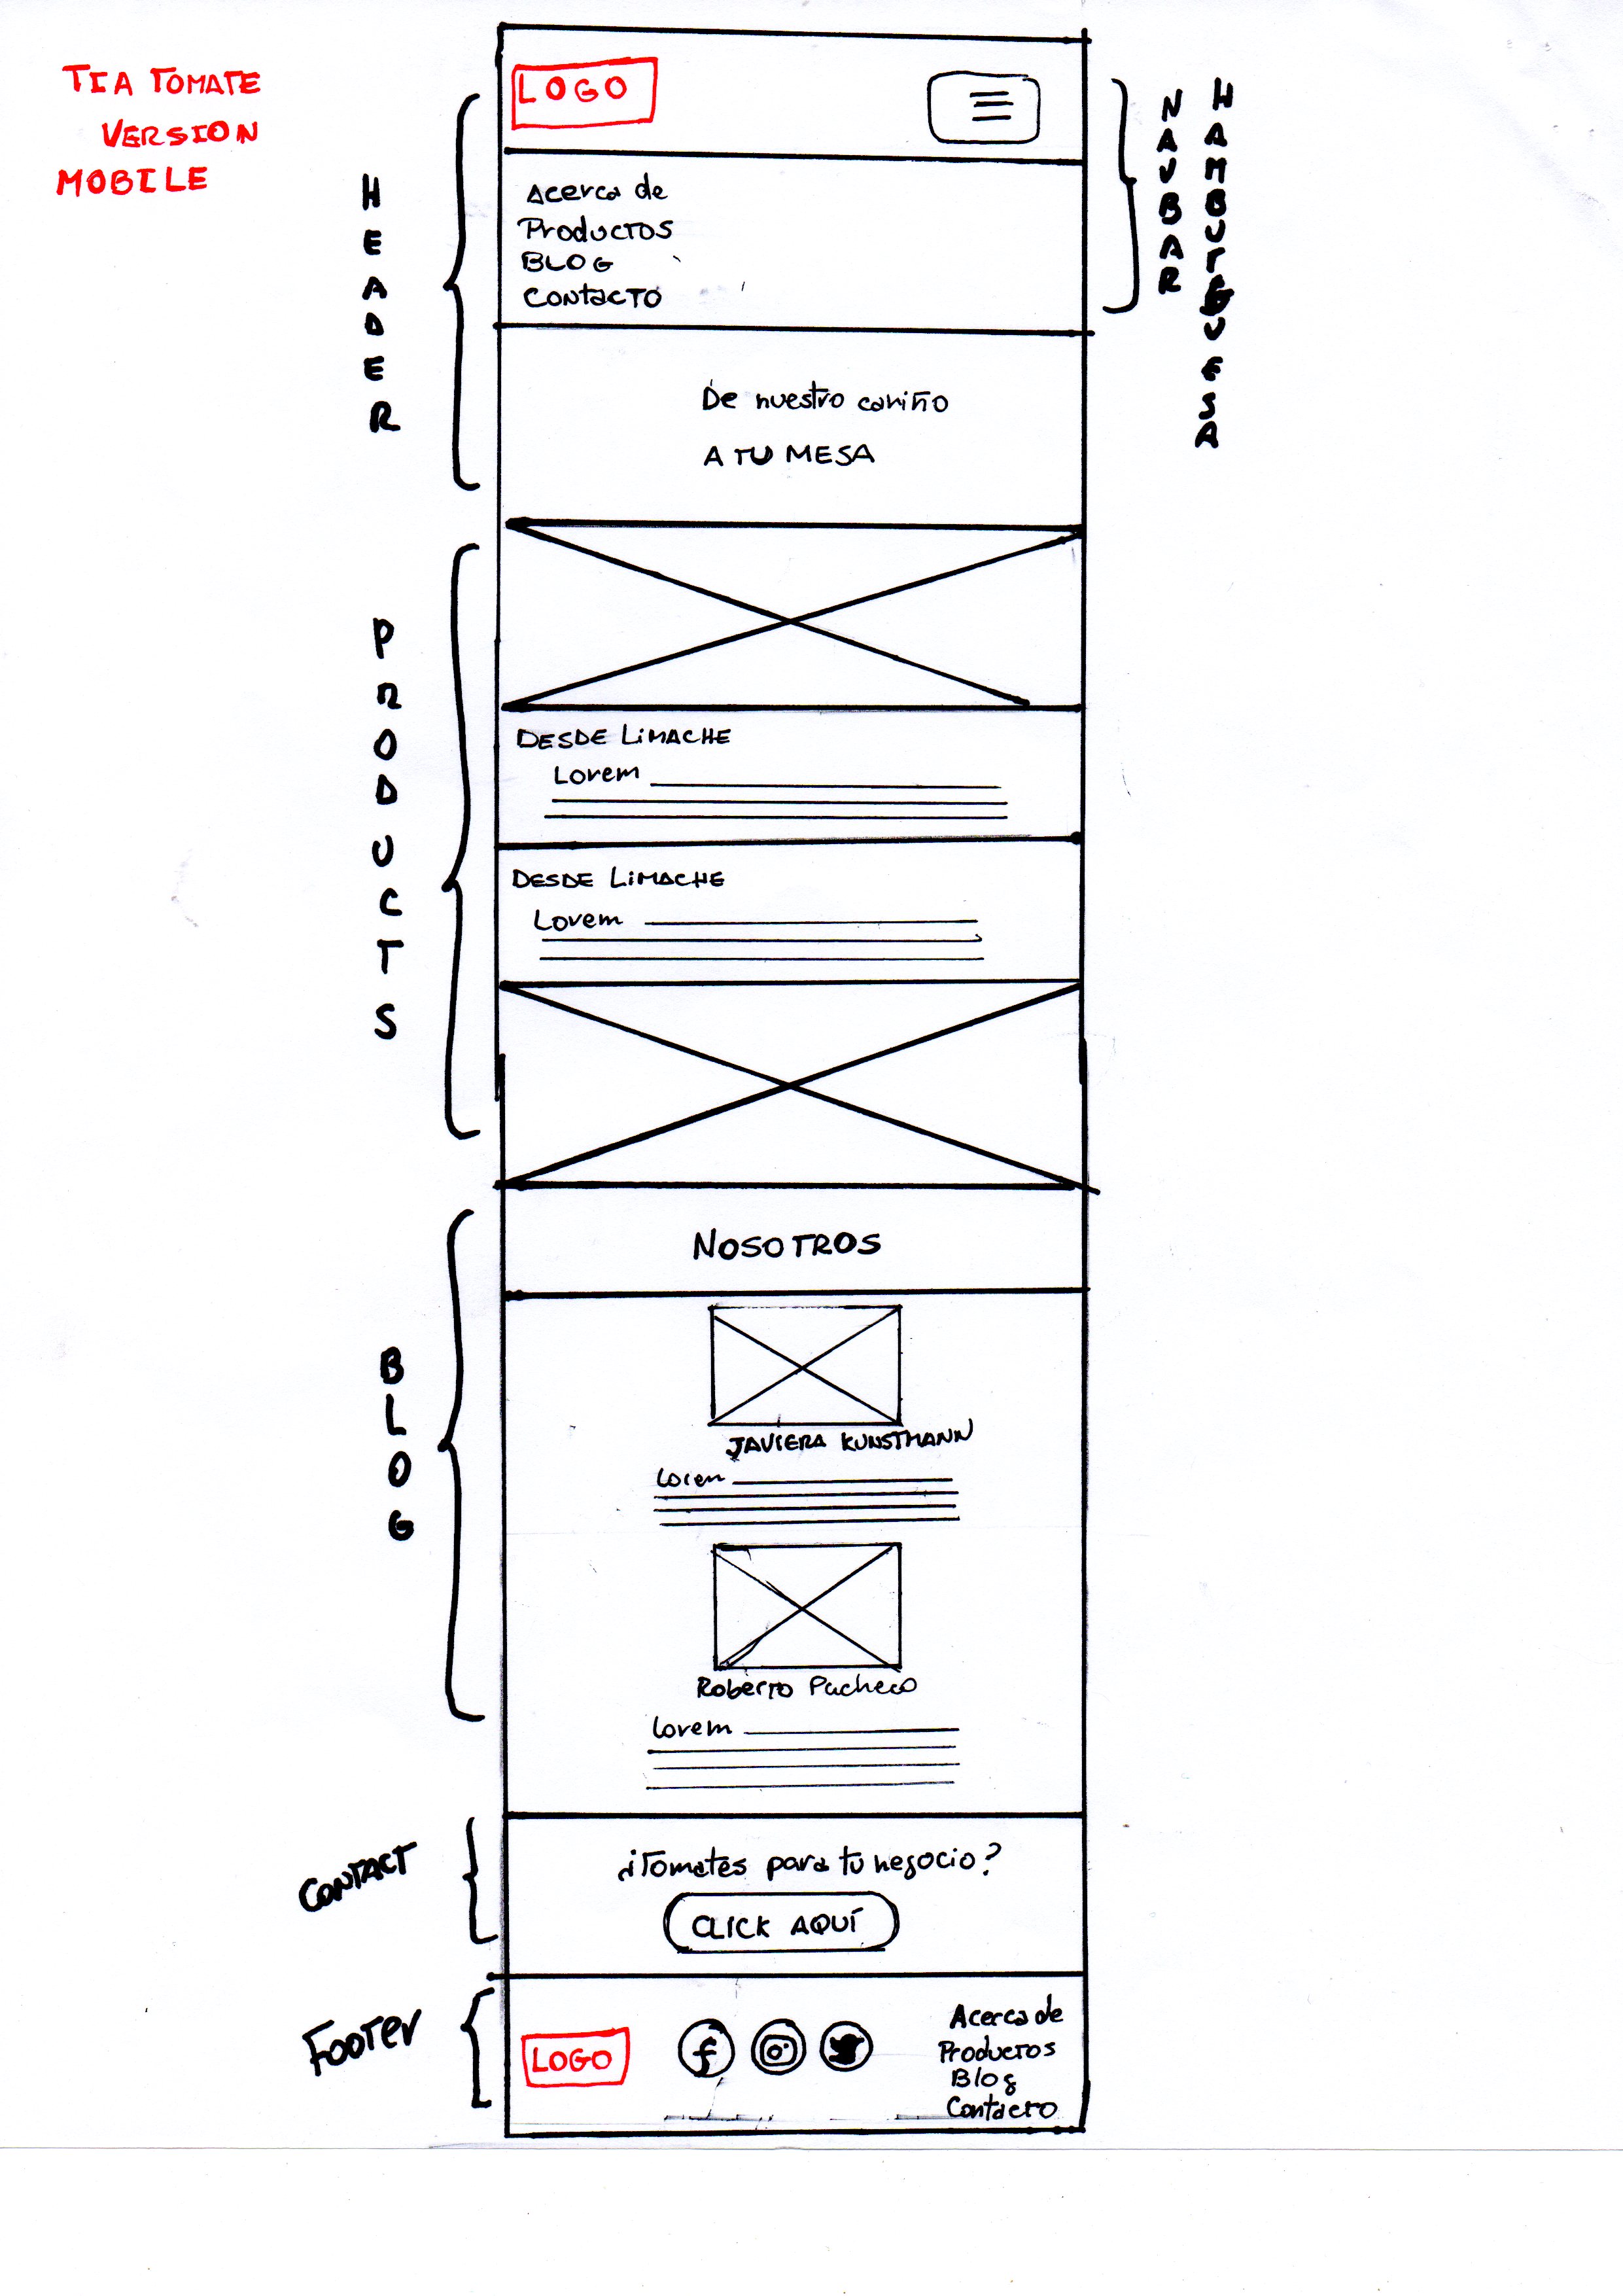 TIA TOMATE
VERSION
MOBILE
LOGO
HEADER
NAVBAR
HAMBURGUESA
Acerca de
Productos
BLOG
Contacto
De nuestro cariño
A TU MESA
PRODUCTS
DESDE LIMACHE
Lorem
DESDE LIMACHE
Lorem
NOSOTROS
BLOG
JAVIERA KUNSTMANN
Lorem
Roberto Pacheco
Lorem
CONTACT
¿Tomates para tu negocio?
CLICK AQUÍ
Footer
LOGO
f
Acerca de
Productos
Blog
Contacto